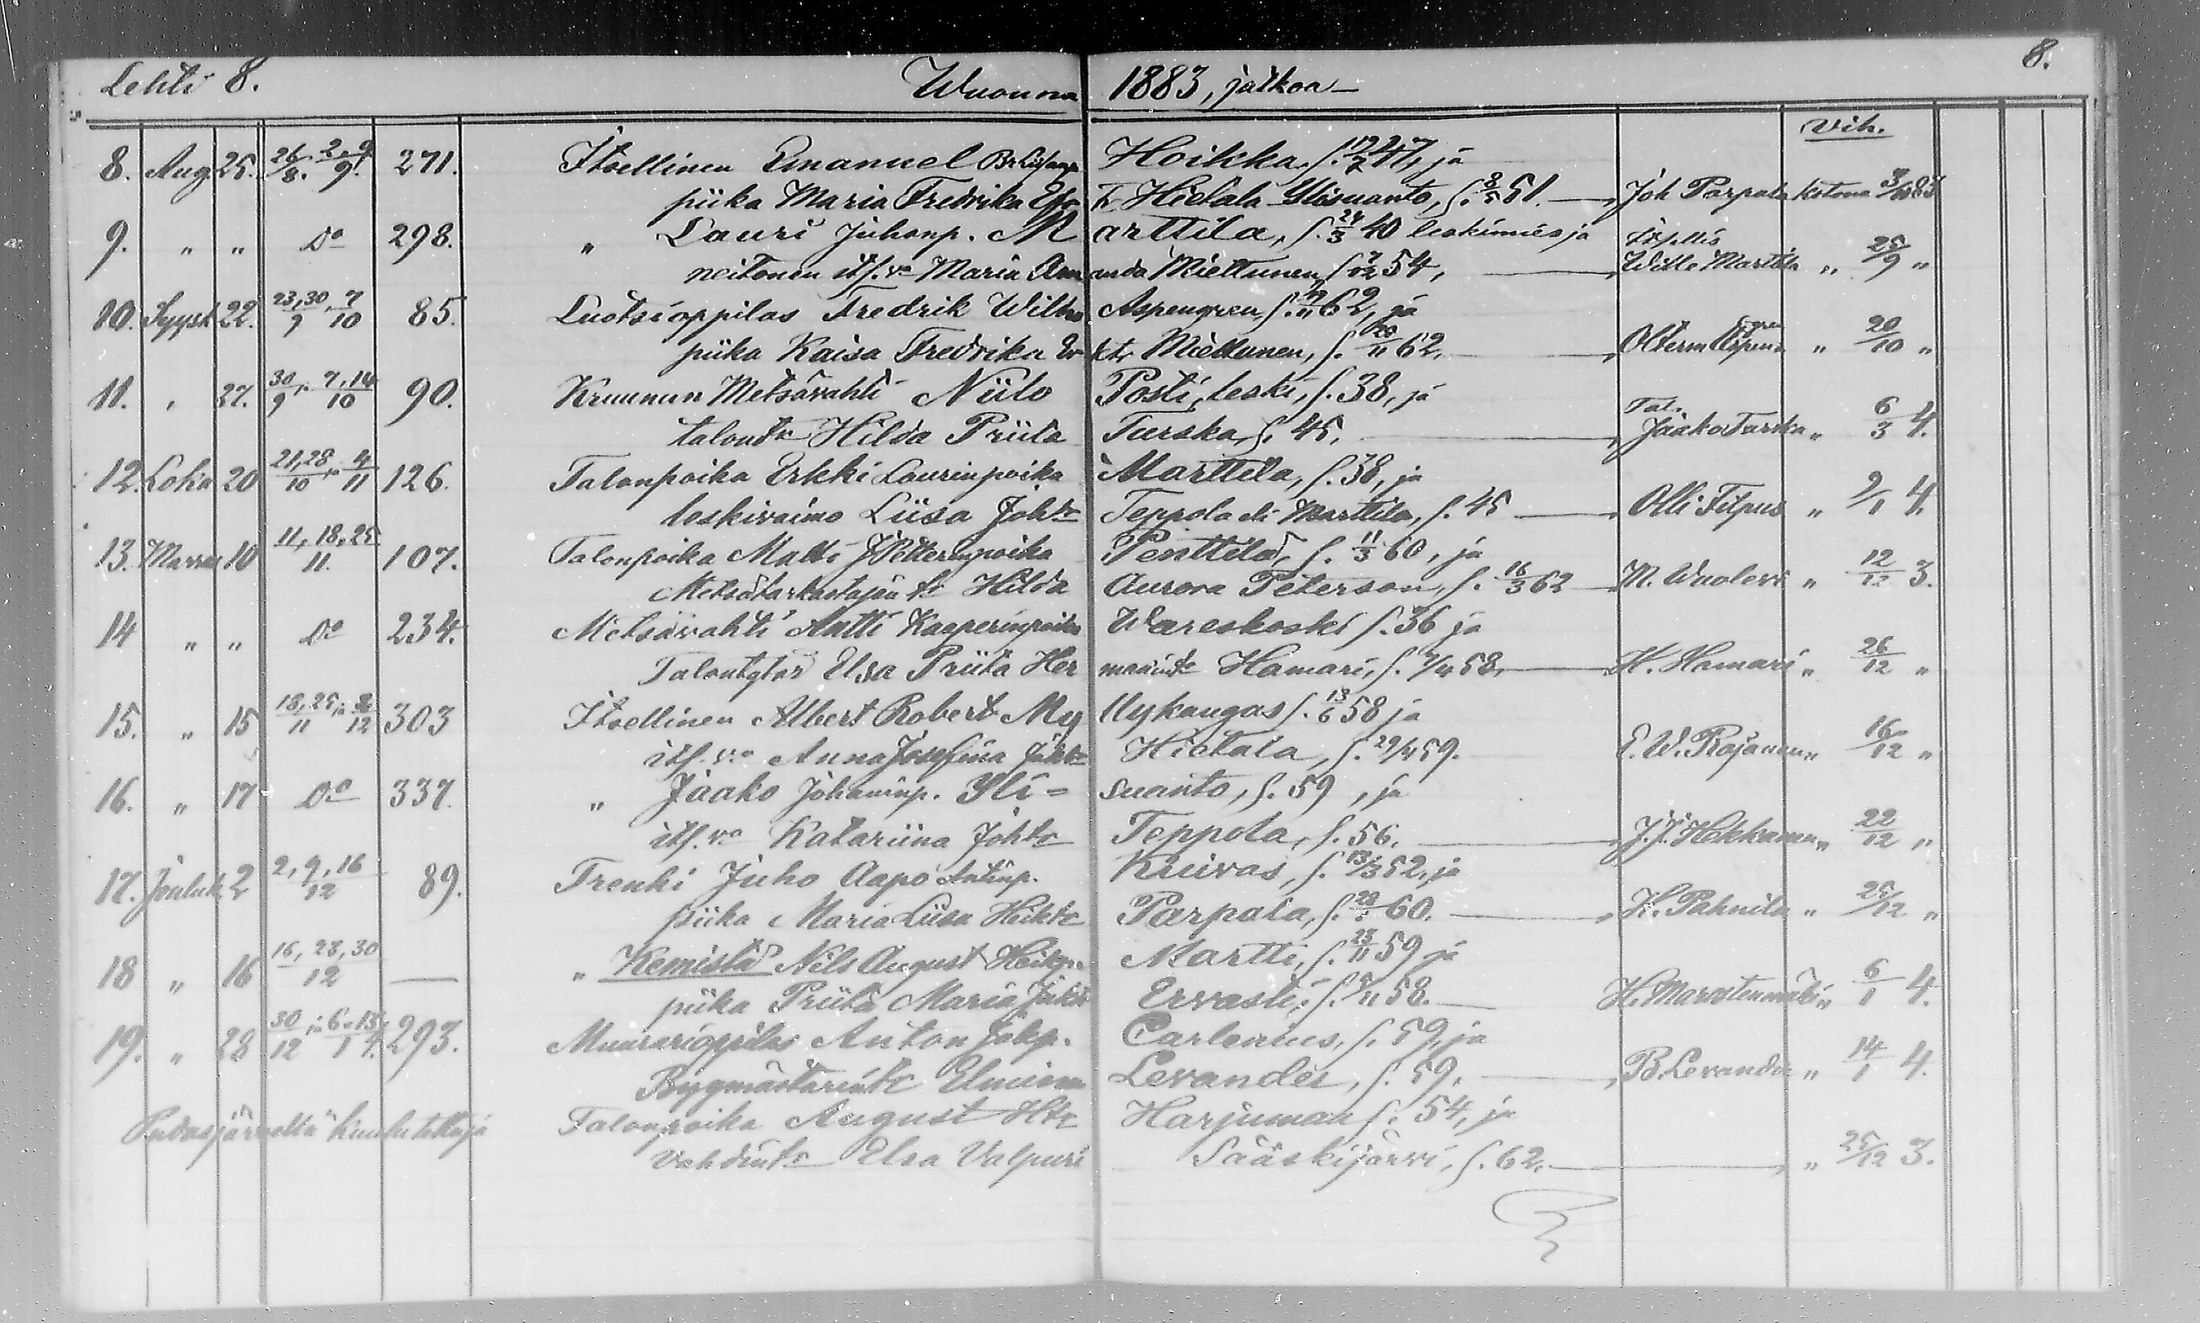 Lehti 8. Wuonna 1883, jatkoa 8.
Vih.
8. Aug 25. 26/8. 2. 9/9. 271. Itsellinen Emanuel Hoikka, s. 47, ja
piika Maria Fredrika Hietala Ylisuanto, s. 51. Joh Parpala kotona 83
9. " " Do 298. " Lauri Juhonp. Marttila, s. 24/3 40 leskimies ja
neitonen its. va Maria Amanda Miettunen, s. 54, Wille Marttila " 25/9 "
10. Syysk 22. 23,30/9 7/10 85. Luotsioppilas Fredrik Wilho Aspengren, s. 62, ja
piika Kaisa Fredrika Miettunen, s. 62. " 20/10 "
11. " 27. 30/9 7,14/10 90. Kruunun Metsävahti Niilo Posti, leski, s. 38, ja
talontr Hilda Priita Turska, s. 45. Tal. Jaako Turska " 6/3 4.
12. Loka 20 21,28/10 4/11 126. Talonpoika Erkki Laurinpoika Marttila, s. 38, ja
leskivaimo Liisa Johtr Teppola eli Marttila, s. 45 Olli Filpus " 9/1 4.
13. Marras 10 11, 18, 25/11. 107. Talonpoika Matti Petterinpoika Penttilä, s. 11/3 60, ja
Metsätarkastajan tr Hilda Aurora Peterson, s. 16/3 62 M. Wuolevi " 12/12 3.
14 " " Do 234. Metsävahti Antti Kasperinpoika Wareskoski s. 36 ja
Talontytär Elsa Priita Hermannintr Hamari, s. 58. H. Hamari " 26/12 "
15. " 15 18, 25/11 2/12 303 Itsellinen Albert Robert Myllykangas s. 13/6 58 ja
its. va Anna Josefina Johtr Hietala, s. 29/4 59. E. W. Rajanen " 16/12 "
16. " 17 Do 337. " Jaako Johaninp. Yli=suanto, s. 59, ja
its. va Katariina Johtr Teppola, s. 56. J. J. Hekkanen " 22/12 "
17. Jouluk 2 2, 9, 16/12 89. Trenki Juho Aapo Antinp. Kuivas, s. 13/3 52, ja
piika Maria Liisa Heiktr Parpala, s. 60. H. Pahnila " 25/12 "
18 " 16 16, 23, 30/12 — " Kemistä Nils August Heikp. Martti, s. 23/11 59 ja
piika Priita Maria Ervasti, s. 58. H. Marostenmäki " 6/1 4.
19. " 28 30/12 6. 13/1 4. 293. Muurarioppilas Anton Carlenius, s. 59, ja
Bygmästarintr Elmiina Levander, s. 59. B. Levander " 14/1 4.
Pudasjärvellä kuulutettuja Talonpoika August Harjumaa s. 54, ja
Vahdintr Elsa Valpuri Sääskijärvi, s. 62. " 25/12 3.